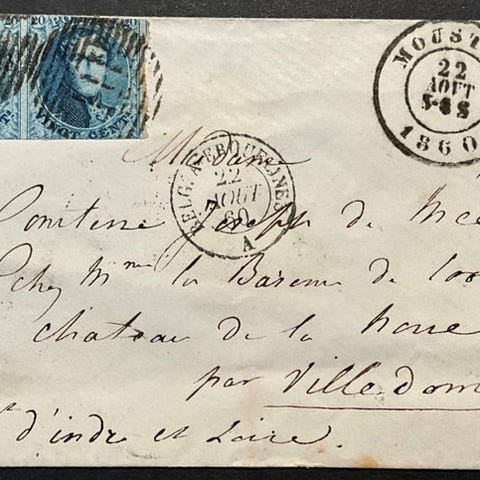 20 20 20
VINGT CENTS
MOUST
22
AOUT
5-6 S
1860
BELG. A
22
AOUT
60
A
Madame
Comtesse Joseph de
chez Mme la Baronne de
chateau de la
par Villedom
d'indre et Loire.